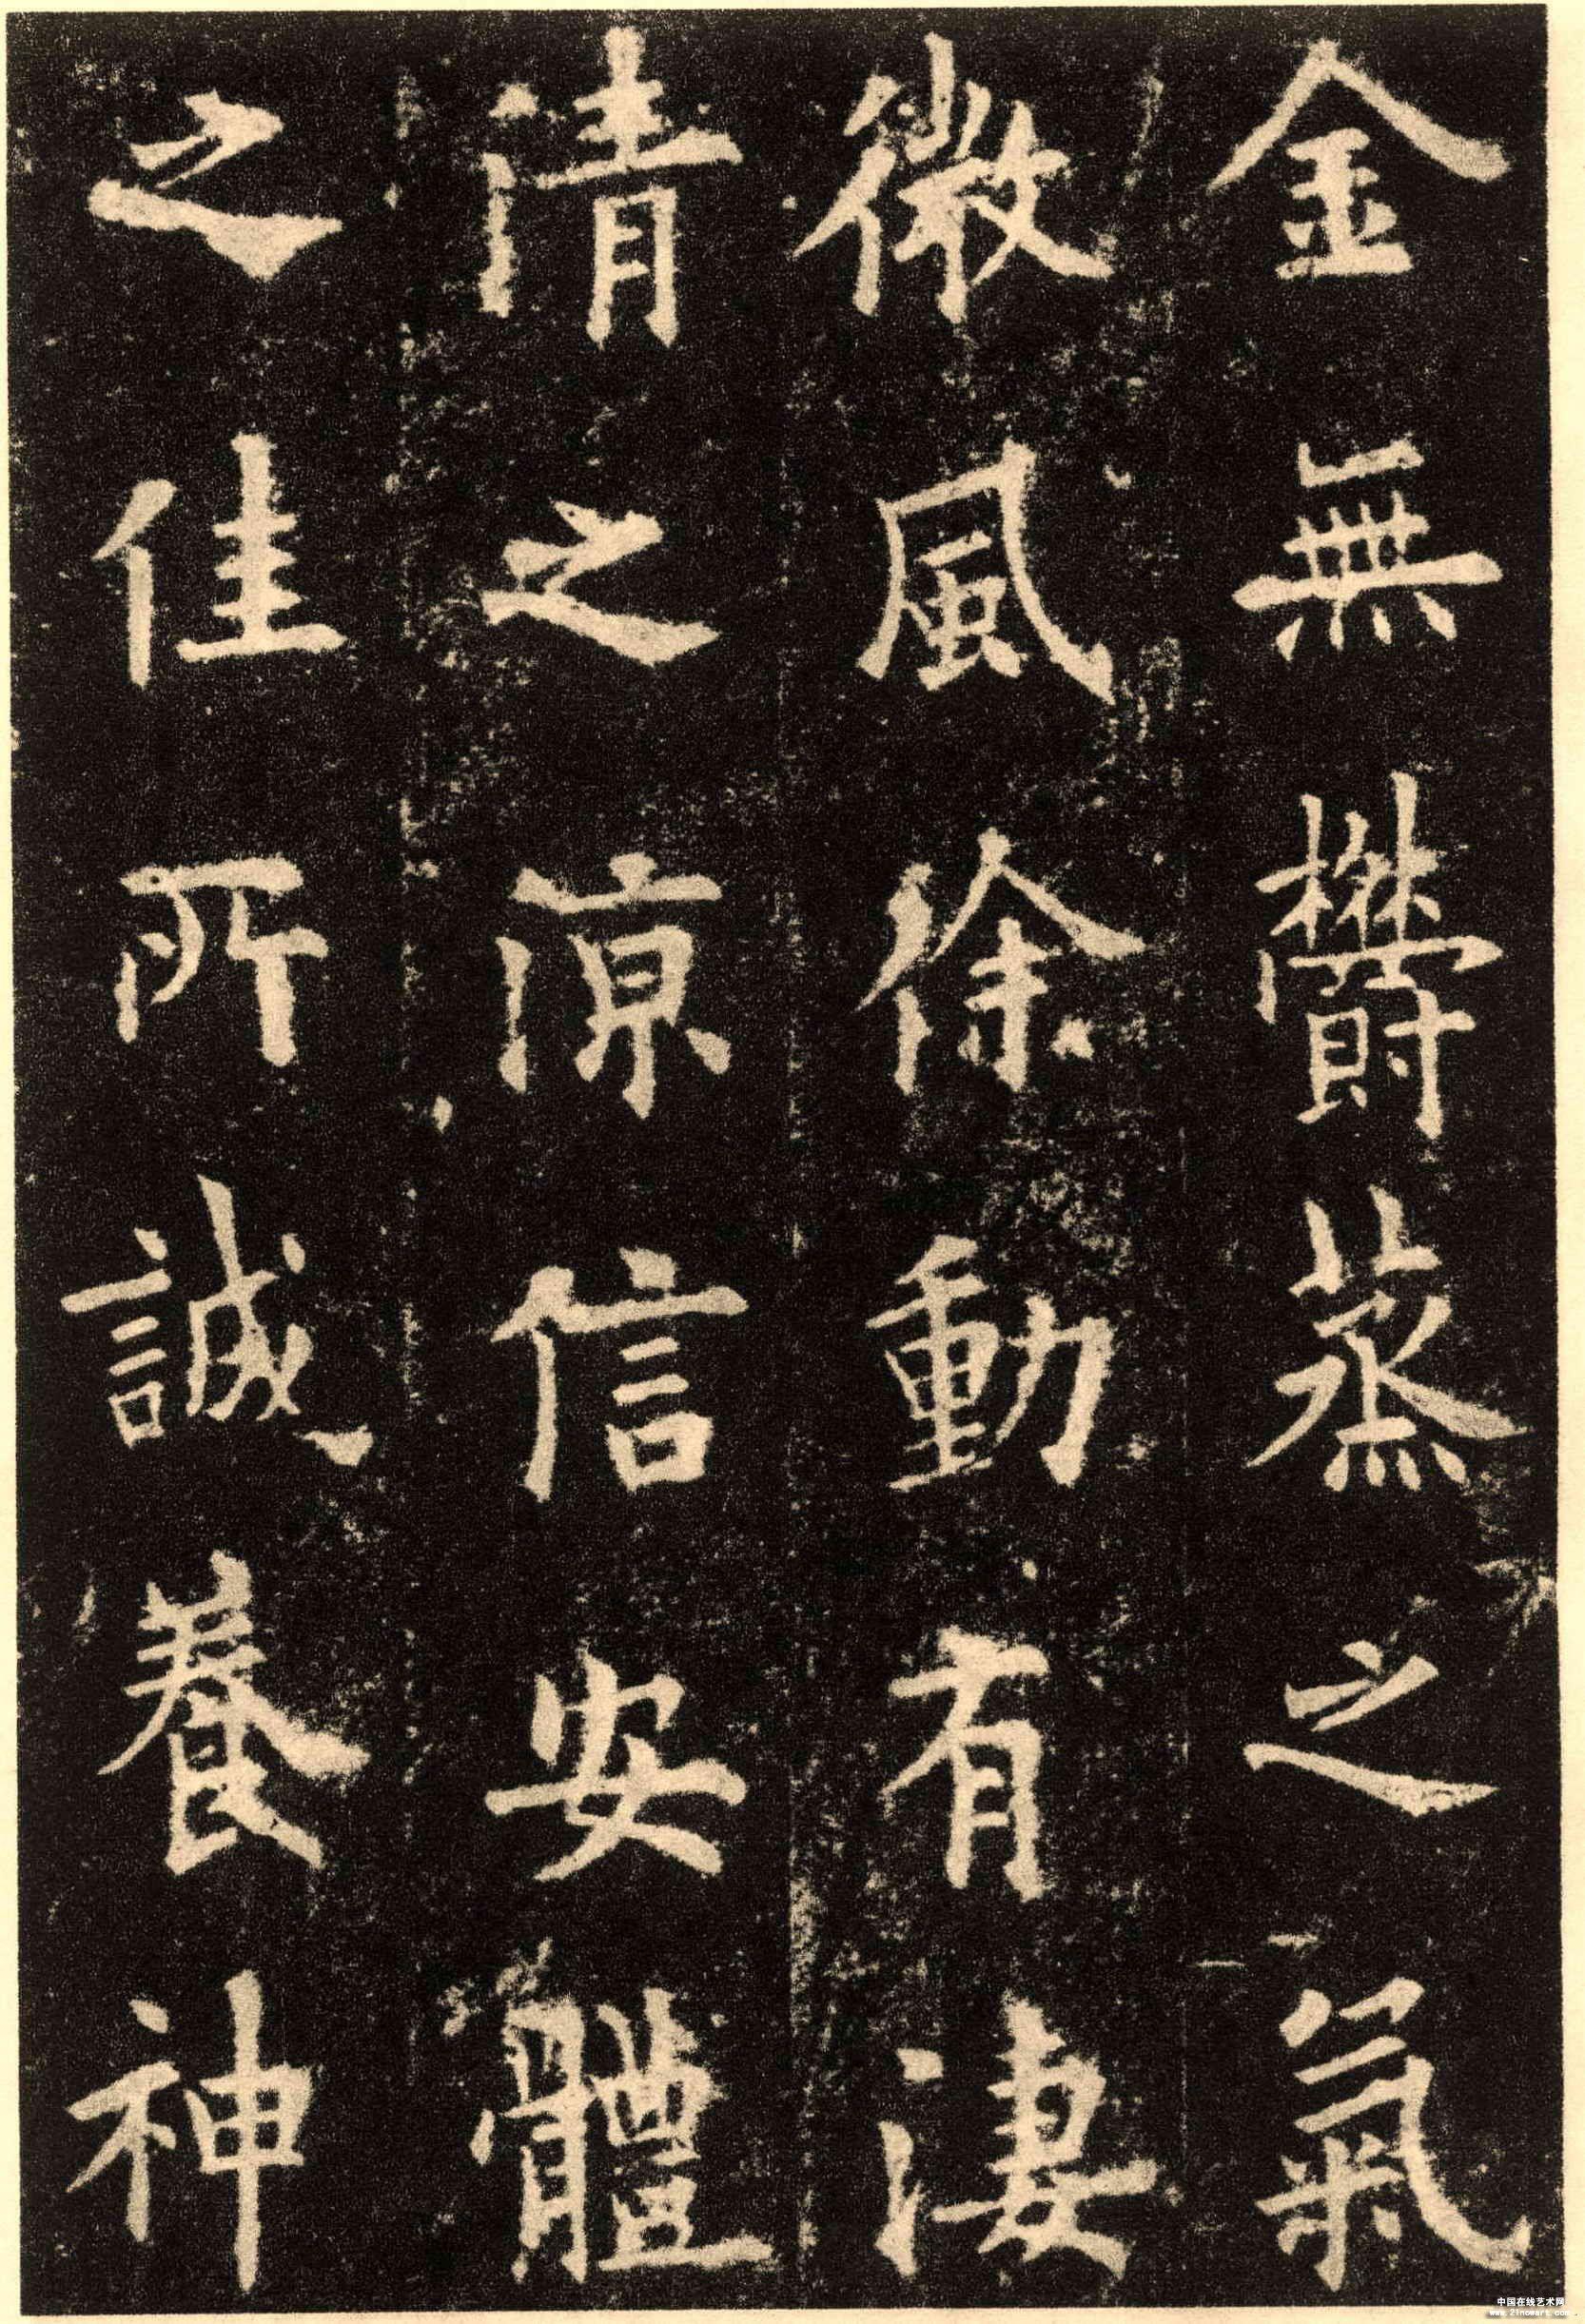 金無欝蒸之氣
微風徐動有淒
清之涼信安體
之佳所誠養神
中国在线艺术网
www.21nowart.com